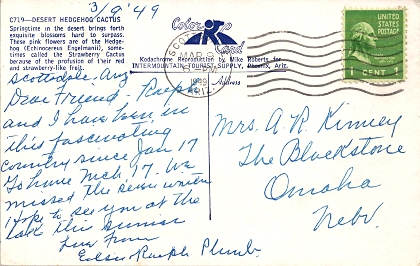 3/9'49
C719—DESERT HEDGEHOG CACTUS
Springtime in the desert brings forth
exquisite blossoms hard to surpass.
These pink flowers are of the Hedge-
hog (Echinocereus Engelmanii), some-
times called the Strawberry Cactus
because of the profusion of their red
and strawberry-like fruit.
Color
Card
Kodachrome Reproduction by Mike Roberts for
INTERMOUNTAIN TOURIST SUPPLY, Phoenix, Ariz.
Address
MAR 9
1949
ARIZ.
UNITED STATES
POSTAGE
1 CENT 1
Scottsdale, Ariz
Dear Friend - Ralph
and I have been in
this fascinating
country since Jan 17
Go home Mch. 17. We
missed the severe winter
Hope to see you at the
Lake this summer
Love from
Ralph Plumb.
Mrs. A. R. Kinney
The Blackstone
Omaha
Nebr.